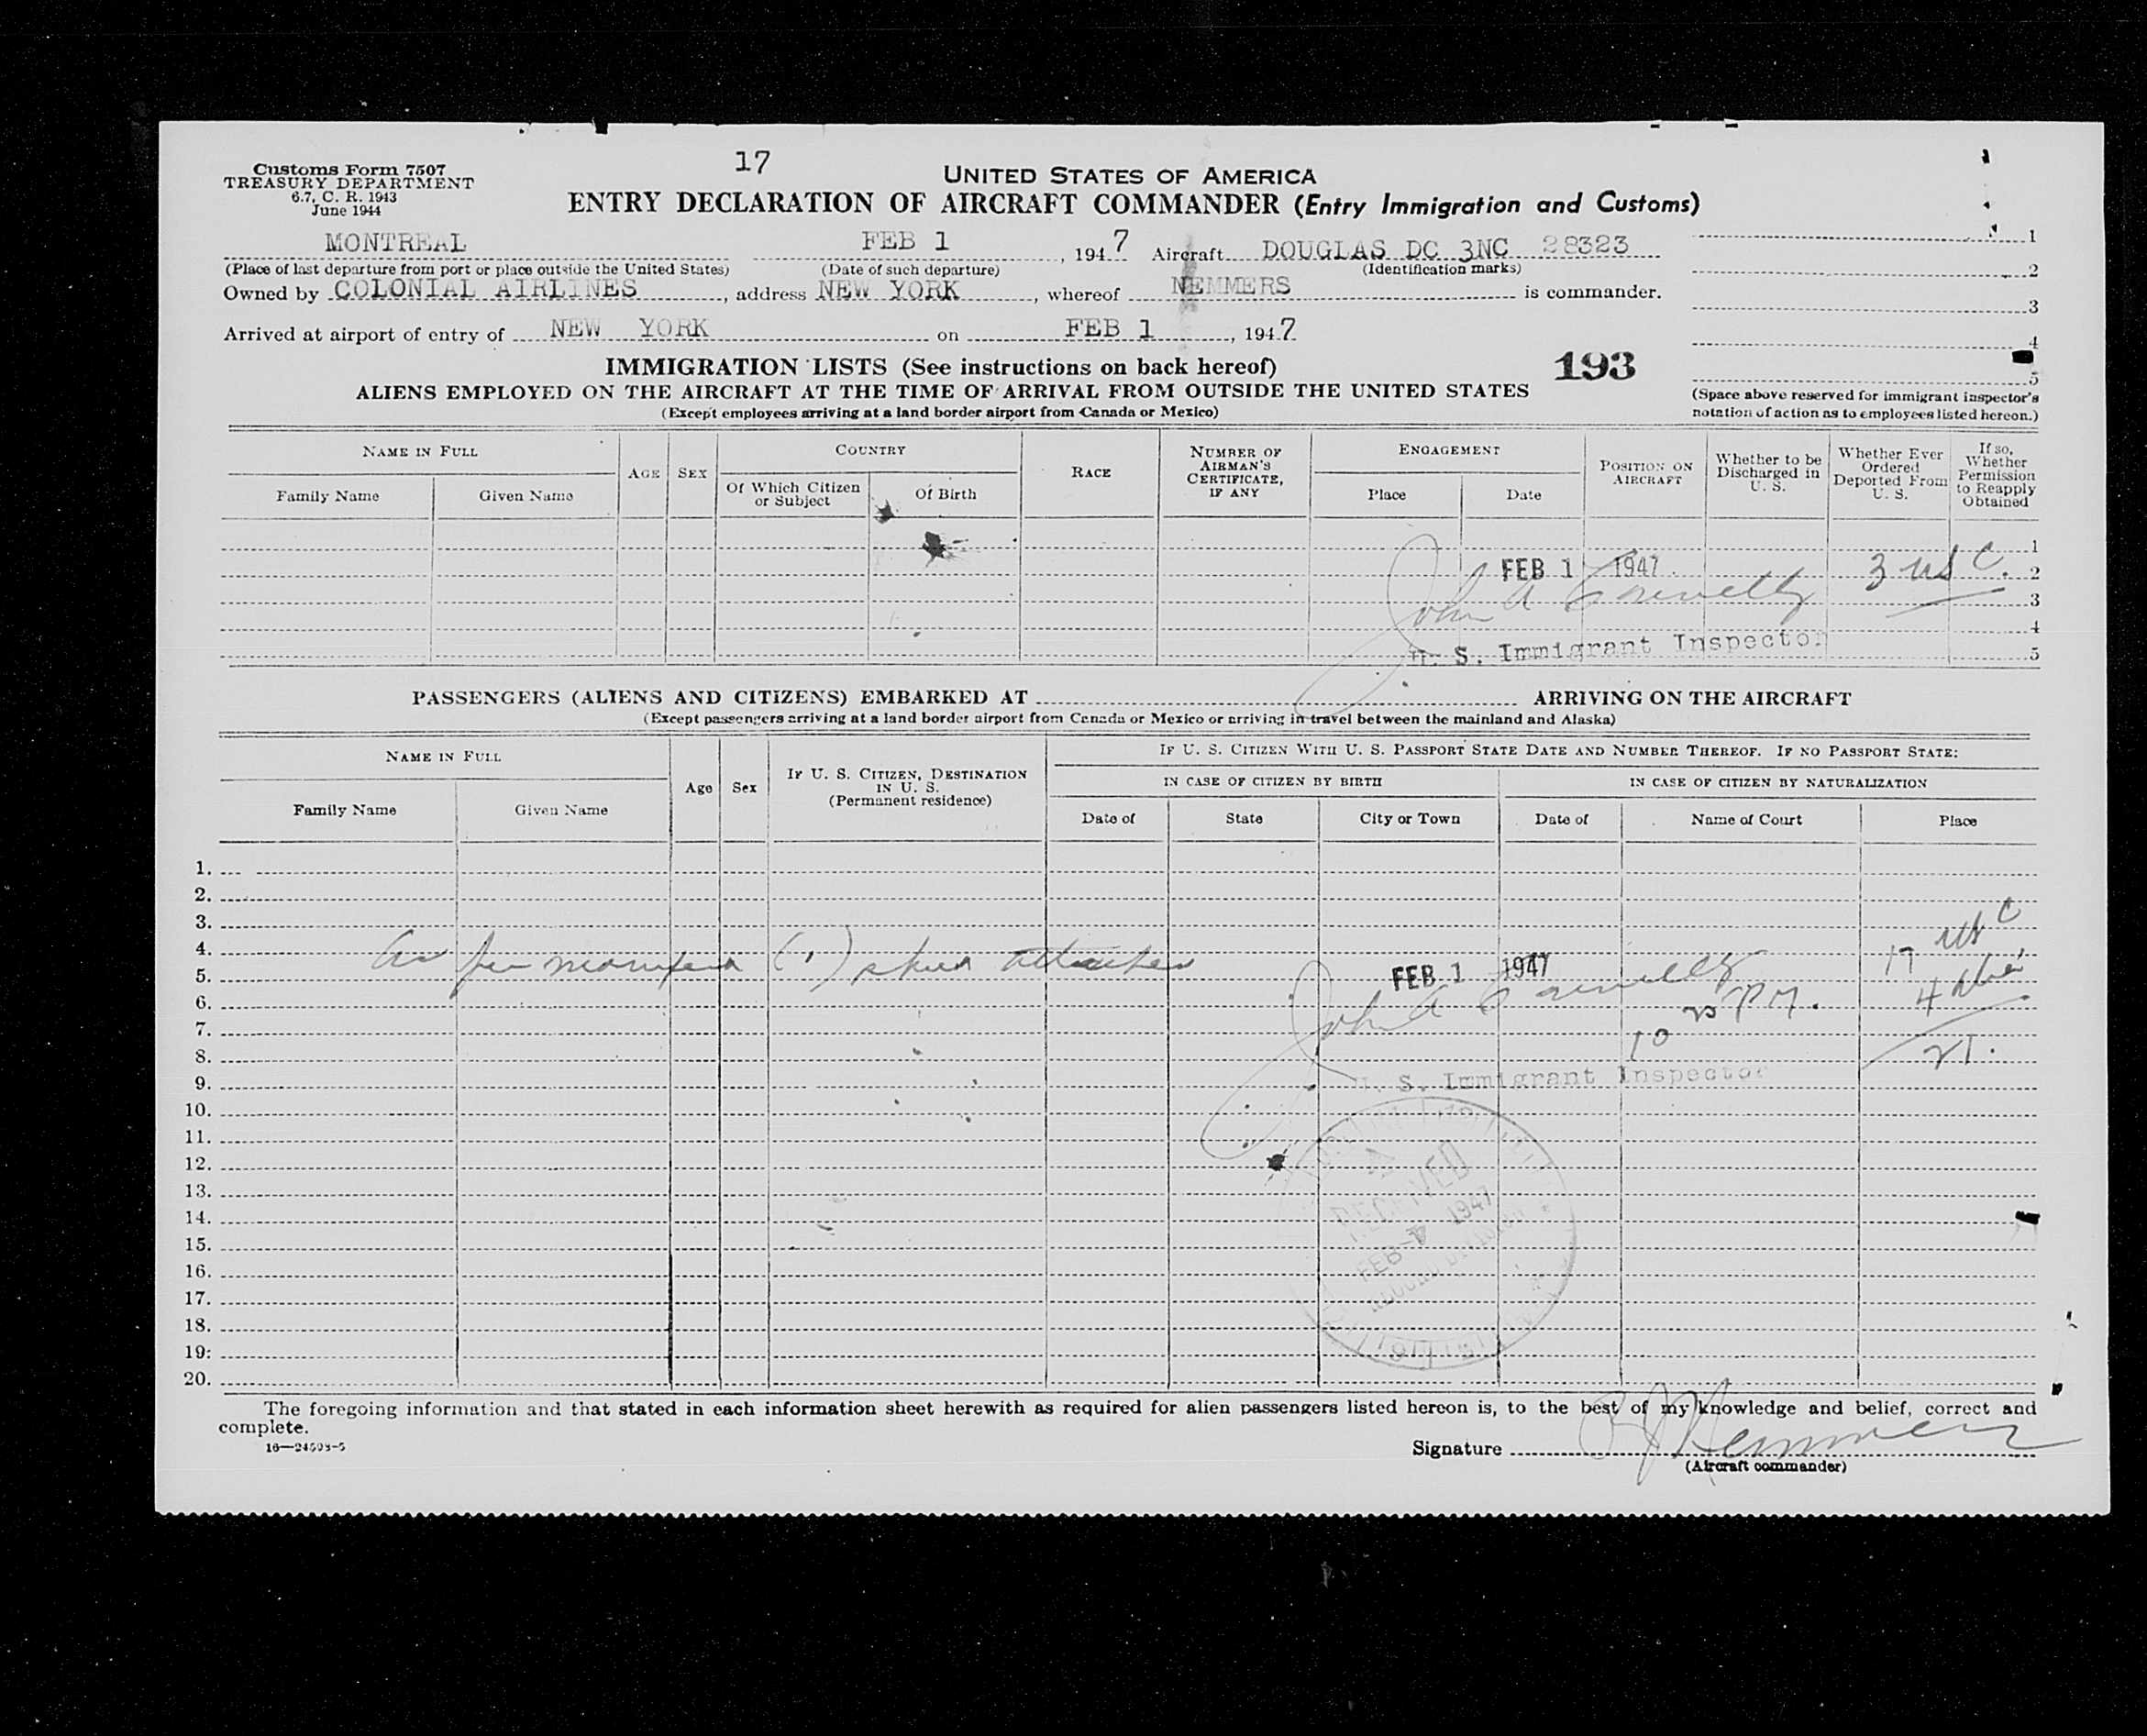 Customs Form 7507
TREASURY DEPARTMENT
6.7, C. R. 1943
June 1944
17
UNITED STATES OF AMERICA
ENTRY DECLARATION OF AIRCRAFT COMMANDER (Entry Immigration and Customs)
MONTREAL FEB 1, 1947 Aircraft DOUGLAS DC 3NC 28323
(Place of last departure from port or place outside the United States) (Date of such departure) (Identification marks)
Owned by COLONIAL AIRLINES, address NEW YORK, whereof NEMMERS is commander.
Arrived at airport of entry of NEW YORK on FEB 1, 1947
1
2
3
4
5
IMMIGRATION LISTS (See instructions on back hereof)
193
ALIENS EMPLOYED ON THE AIRCRAFT AT THE TIME OF ARRIVAL FROM OUTSIDE THE UNITED STATES
(Except employees arriving at a land border airport from Canada or Mexico)
(Space above reserved for immigrant inspector's
notation of action as to employees listed hereon.)
NAME IN FULL
Family Name Given Name
AGE SEX
COUNTRY
Of Which Citizen or Subject Of Birth
RACE
NUMBER OF AIRMAN'S CERTIFICATE, IF ANY
ENGAGEMENT
Place Date
POSITION ON AIRCRAFT
Whether to be Discharged in U. S.
Whether Ever Ordered Deported From U. S.
If so, Whether Permission to Reapply Obtained
1
FEB 1 1947 3 US C. 2
John A 3
4
U. S. Immigrant Inspector 5
PASSENGERS (ALIENS AND CITIZENS) EMBARKED AT ARRIVING ON THE AIRCRAFT
(Except passengers arriving at a land border airport from Canada or Mexico or arriving in travel between the mainland and Alaska)
NAME IN FULL
Family Name Given Name
Age Sex
IF U. S. CITIZEN, DESTINATION IN U. S.
(Permanent residence)
IF U. S. CITIZEN WITH U. S. PASSPORT STATE DATE AND NUMBER THEREOF. IF NO PASSPORT STATE:
IN CASE OF CITIZEN BY BIRTH IN CASE OF CITIZEN BY NATURALIZATION
Date of State City or Town Date of Name of Court Place
1.
2.
3. US C
4. As per manifest (1) sheet attached 17
5. FEB 1 1947
6. John A 4
7. 10 25 PM.
8. 21.
9. U. S. Immigrant Inspector
10.
11.
12. RECEIVED
13.
14. FEB 1947
15.
16.
17.
18.
19.
20.
The foregoing information and that stated in each information sheet herewith as required for alien passengers listed hereon is, to the best of my knowledge and belief, correct and
complete.
16—24593-5
Signature Nemmers
(Aircraft commander)